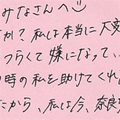 みなさんへ
か? 私は本当に大変
つらくて嫌になって、
時の私を助けてくれ
だから、私は今、奈良